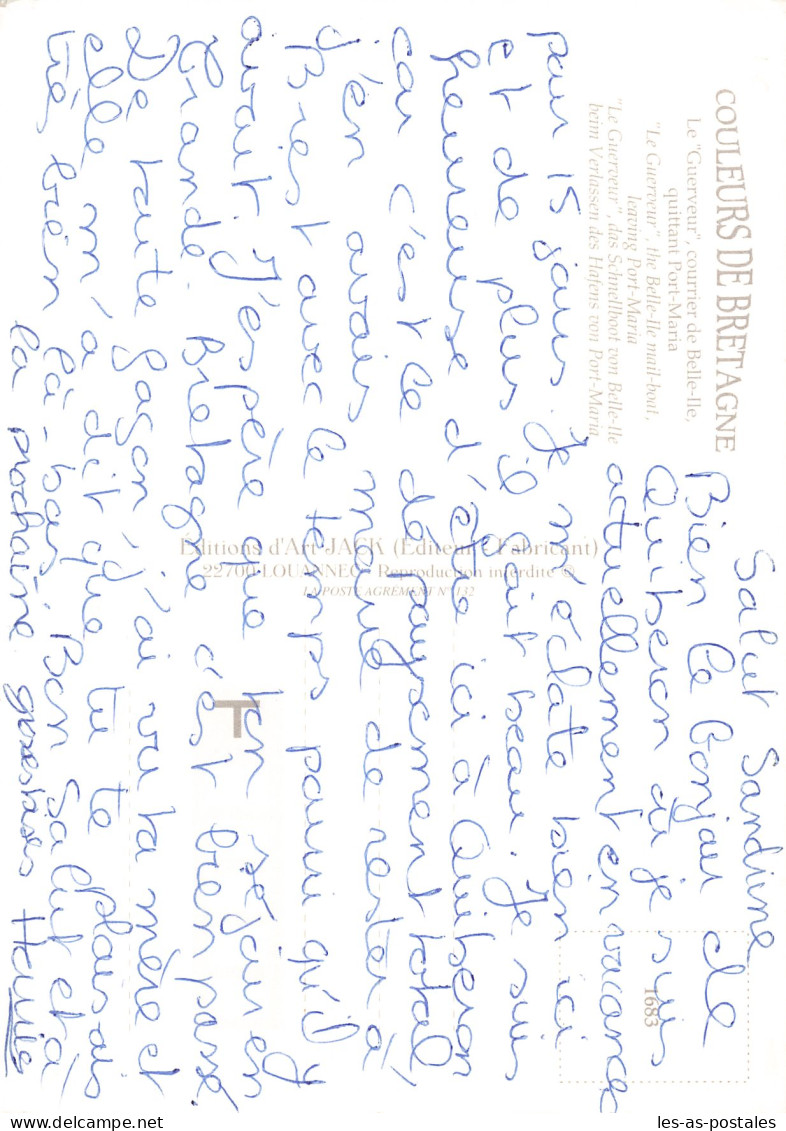 COULEURS DE BRETAGNE
Le "Guerveur", courrier de Belle-Ile,
quittant Port-Maria
"Le Guerveur", the Belle-Ile mail-boat,
leaving Port-Maria
"Le Guerveur", das Schnellboot von Belle-Ile
beim Verlassen des Hafens von Port-Maria
Editions d'Art JACK (Editeur - Fabricant)
22700 LOUANNEC - Reproduction interdite ©
LA POSTE AGREMENT N° 132
1683
Salut Sandrine
Bien le bonjour de
Quiberon où je suis
actuellement en vacance
pour 15 jours. Je m'éclate bien ici
et de plus il fait beau. Je suis
heureuse d'être ici à Quiberon
car c'est le dépaysement total,
j'en avais marre de rester à
Brest avec le temps pourri qu'il y
avait. J'espère que ton séjour en
Grande Bretagne c'est bien passé.
De toute façon, j'ai vu ta mère et
elle m'a dit que tu te plaisais
très bien là-bas. Bon Salut et à
la prochaine grosses bises
les-as-postales